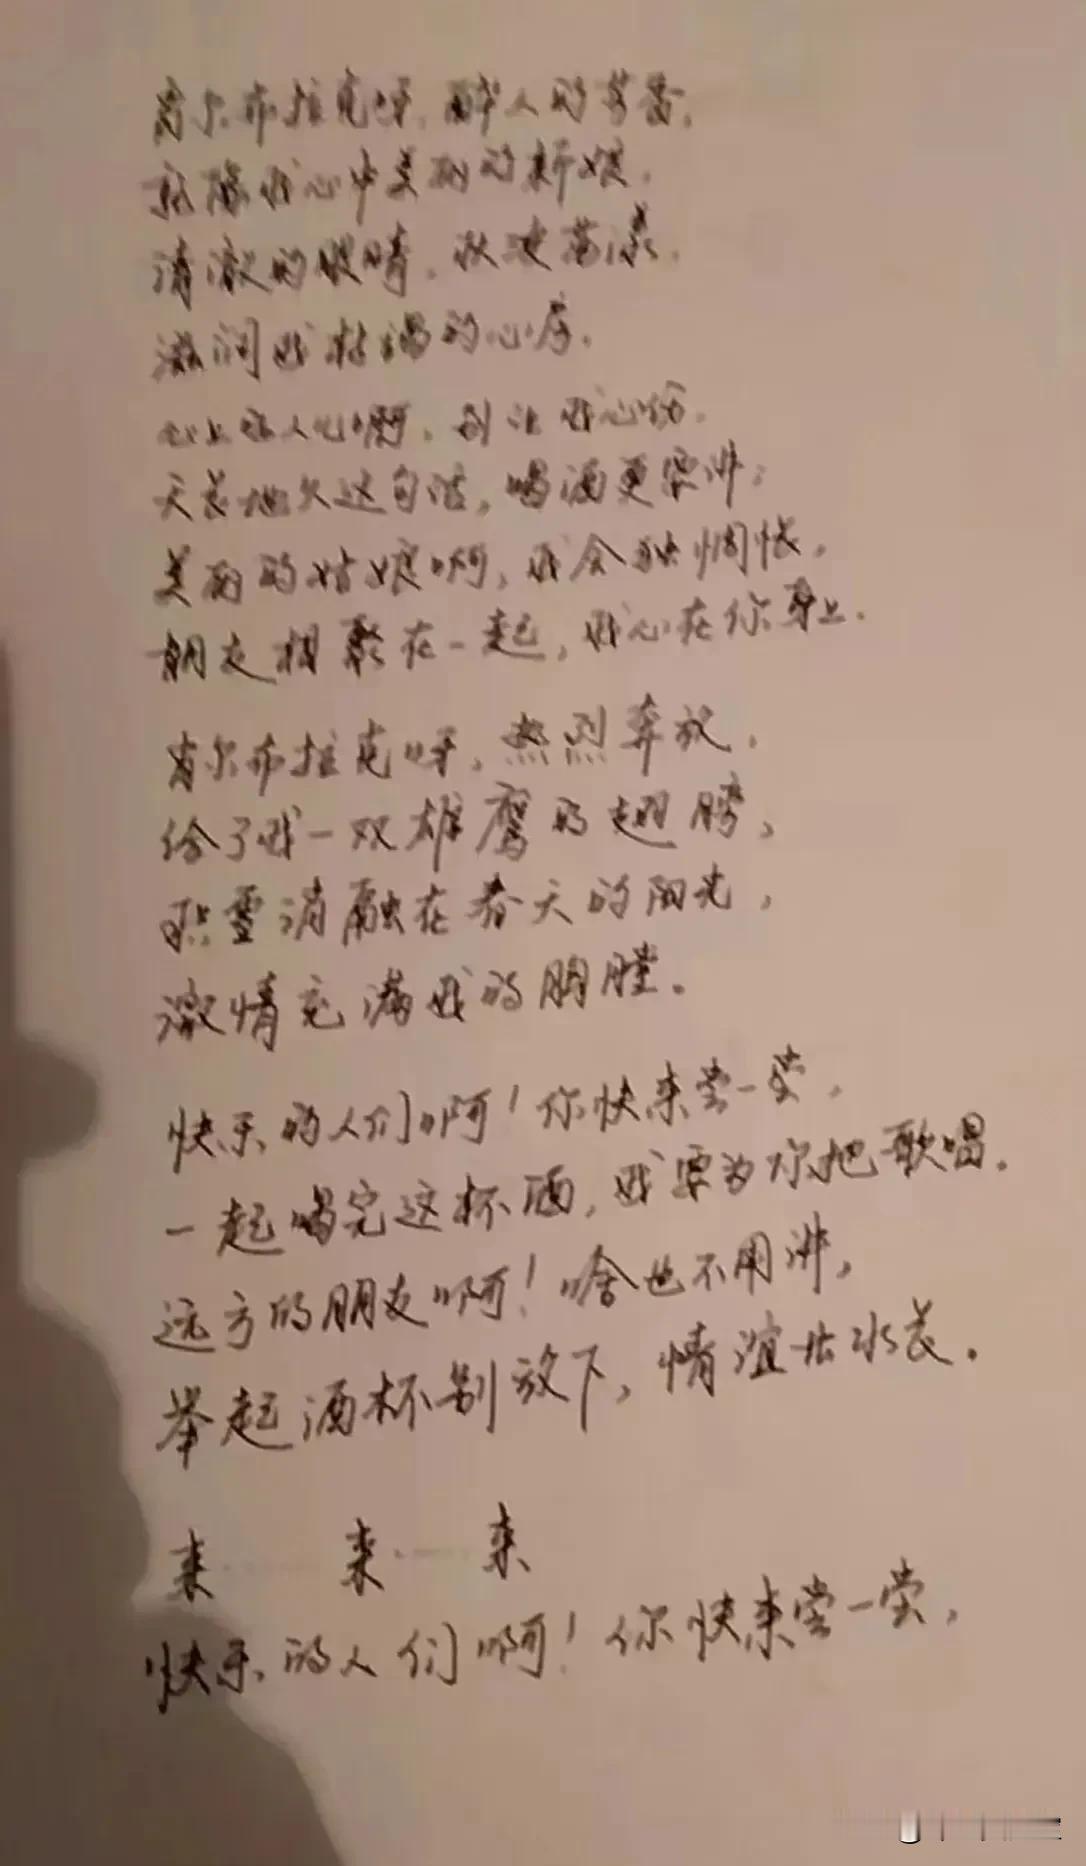 肖尔布拉克呀，醉人的芳香，
就像我心中美丽的新娘，
清澈的眼睛，秋波荡漾，
滋润我枯竭的心房。
心上的人儿啊，别让我心伤，
天长地久这句话，喝酒更要讲；
美丽的姑娘啊，我会独惆怅，
朋友相聚在一起，我心在你身上．
肖尔布拉克呀，热烈奔放，
给了我一双雄鹰的翅膀，
积雪消融在春天的阳光，
激情充满我的胸膛。
快乐的人们啊！你快来尝一尝，
一起喝完这杯酒，我要为你把歌唱。
远方的朋友啊！啥也不用讲，
举起酒杯别放下，情谊比水长。
来……来……来
快乐的人们啊！你快来尝一尝，